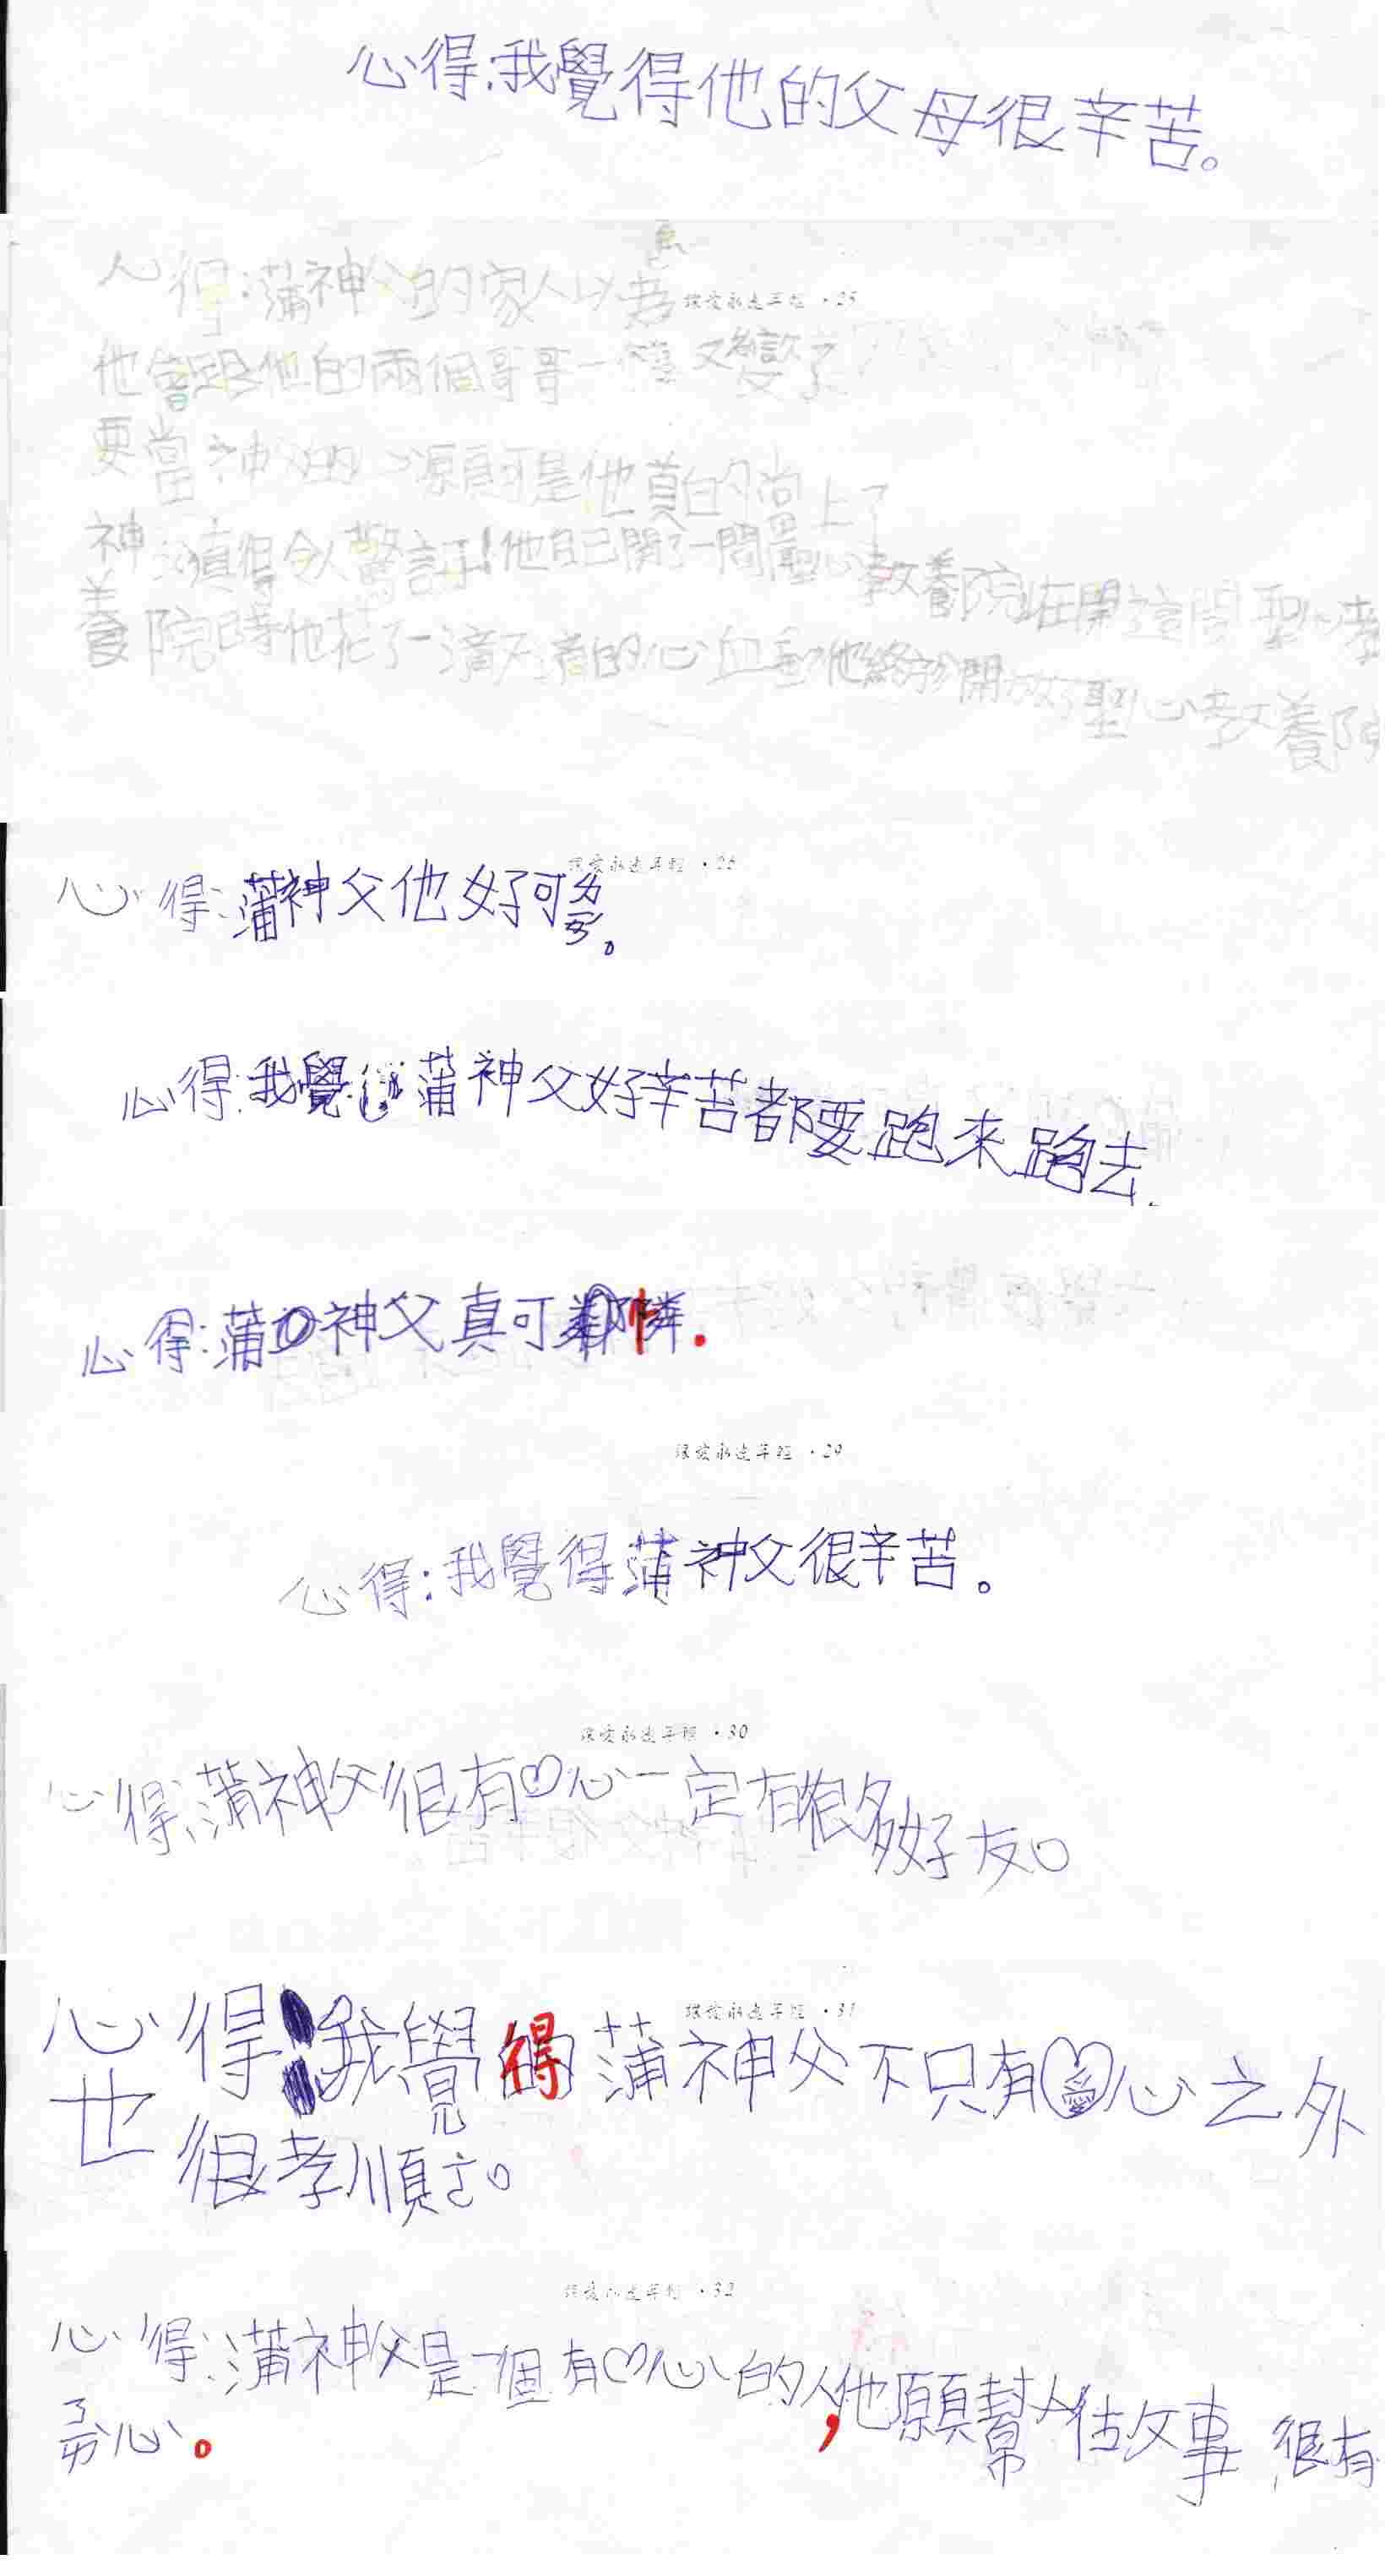 心得:我覺得他的父母很辛苦。
心得:蒲神父的家人以為
讓愛永遠年輕 ·25
他會跟他的兩個哥哥一樣又變了
要當神父的心願可是他真的當上了
神父真得令人驚訝!他自己開了一間聖心教養院在開這間聖心教
養院時他花了一滴不滴的心血 他終於開放了聖心教養院
讓愛永遠年輕 ·26
心得:蒲神父他好可ㄌㄧㄢˊ。
心得:我覺得蒲神父好辛苦都要跑來跑去.
心得:蒲神父真可憐.
讓愛永遠年輕 ·29
心得:我覺得蒲神父很辛苦。
讓愛永遠年輕 ·30
心得:蒲神父很有♡心一定有很多好友。
讓愛永遠年輕 ·31
心得:我覺得蒲神父不只有愛心之外
也很孝順。
讓愛永遠年輕 ·32
心得:蒲神父是一個有♡心的人,他願幫人估攵事,很有
心。